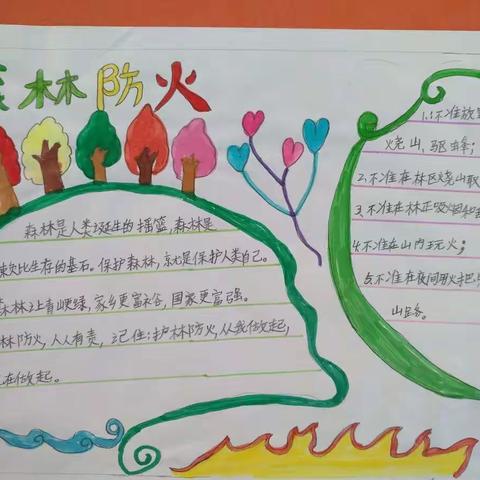 森林防火
森林是人类诞生的摇篮,森林是
类赖以生存的基石。保护森林,就是保护人类自己。
森林之上青峻绿,家乡更富裕,国家更富强。
林防火,人人有责,记住:护林防火,从我做起,
在做起。
1.不准放
烧山、驱
2.不准在林区烧山取
3.不准在林区吸烟和
4.不准在山内玩火;
5.不准在夜间用火把
山路。